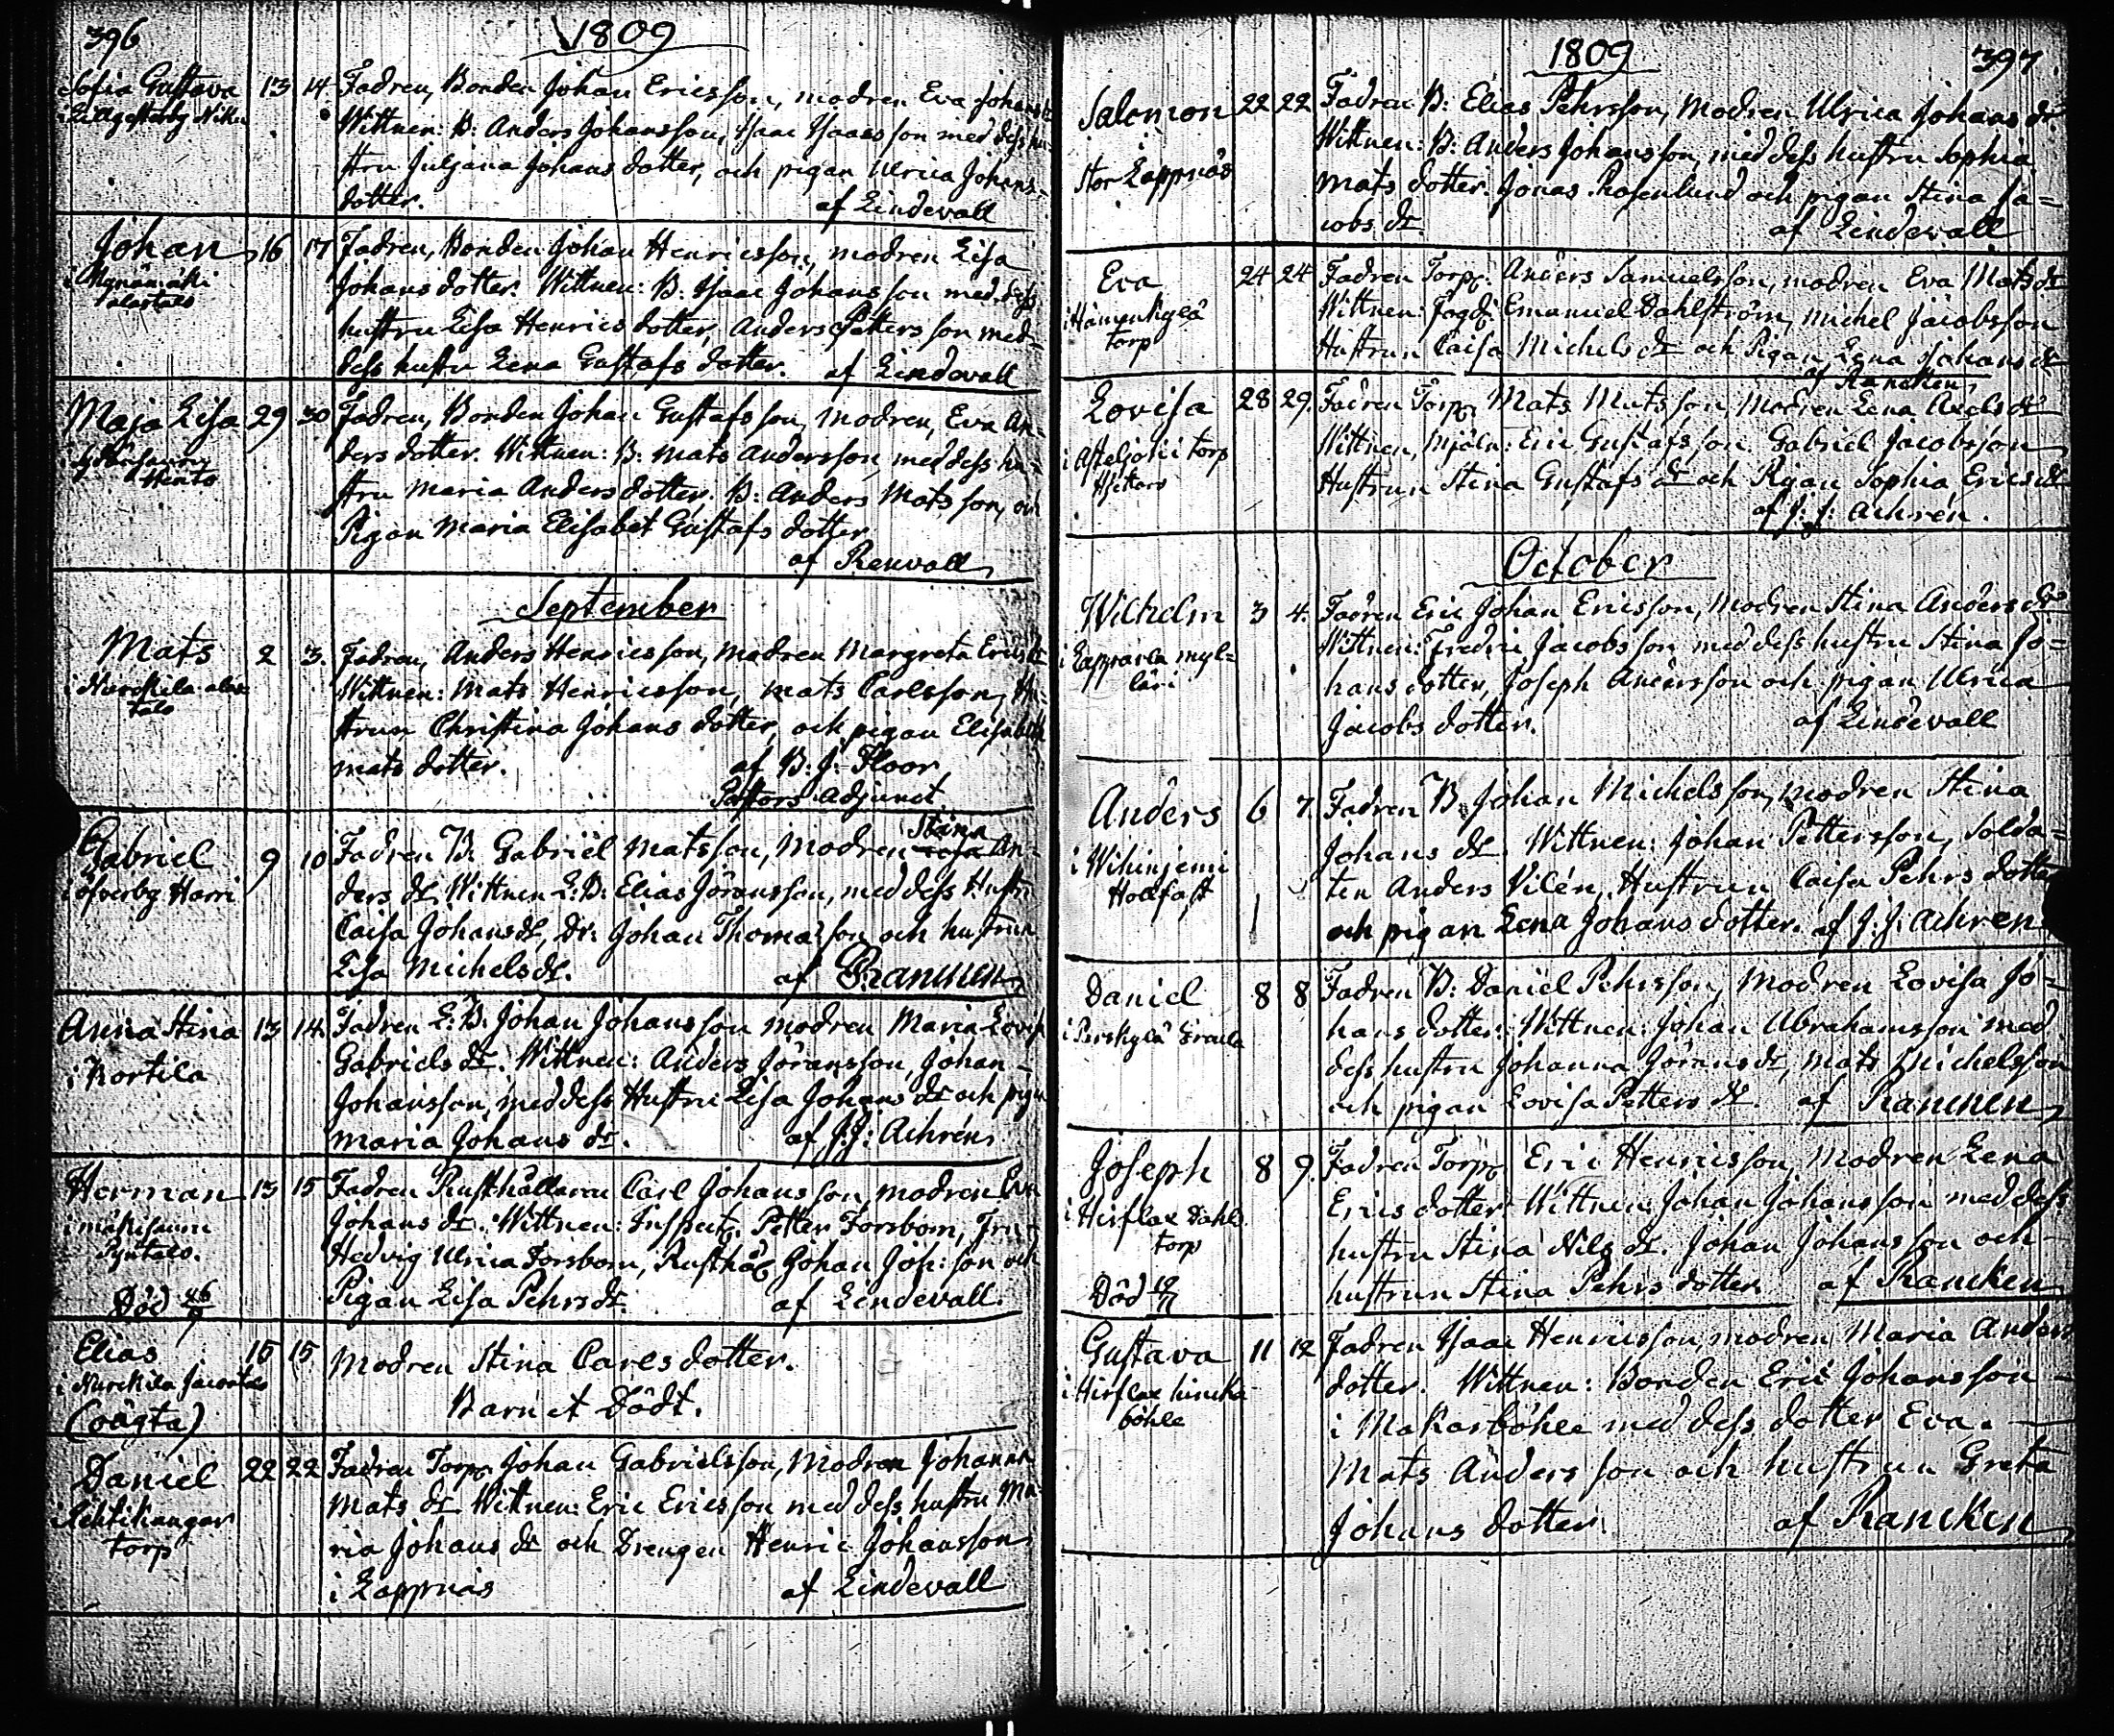 396
1809
Sofia Gustava 13 14 Fadren, Bonden Johan Ericsson, modren Eva Johans
i Agesterby Wittnen: B: Anders Johansson, Isaac Isaacsson med dess hu-
stru Juljana Johans dotter, och pigan Ulrica Johans-
dotter. af Lindevall
Johan 16 17 Fadren, Bonden Johan Henricsson, modren Lisa
i Johans dotter. Wittnen: B. Isaac Johansson med dess
alastalo hustru Lisa Henrics dotter, Anders Petters son med
dess hustru Lena Gustafs dotter. af Lindevall
Maja Lisa 29 30 Fadren, Bonden Johan Gustafsson, modren, Eva An-
i ders dotter. Wittnen: B: Mats Andersson, med dess hu-
Hento stru Maria Anders dotter. B: Anders Matsson, och
Pigan Maria Elisabet Gustafs dotter
af Renvall
September
Mats 2 3. Fadren, Anders Henricsson, modren Margreta Erics dr
i Nurckila alas Wittnen: Mats Henricsson, Mats Carlsson, Hu-
talo strun Christina Johans dotter, och pigan Elisabeth
mats dotter. af B. J. Floor
Pastors Adjunct
Stina
Gabriel 9 10 Fadren B. Gabriel Matsson, Modren An-
i öfverby Harri ders dr. Wittnen L: B: Elias Jöransson, med dess Hustru
Caisa Johans dr, Dr: Johan Thomasson och hustrun
Lisa Michels dr. af Rancken
Anna Stina 13 14. Fadren L: B. Johan Johansson modren Maria Lovisa
i Kortila Gabriels dr. Wittnen: Anders Jöransson, Johan
Johansson, med dess Hustru Lisa Johans dr och pigan
Maria Johans dr. af J: J: Achrén
Herman 13 15 Fadren Rusthållaren Carl Johansson, modren Eva
i mäkisaurn Johans dr. Wittnen: Inspect. Petter Forsbom, Fru
Pyntalo. Hedvig Ulrica Forsbom, Rusthål Johan Joh: son och
Död 26/9 Pigan Lisa Pehrs dr af Lindevall.
Elias 15 15 Modren Stina Carls dotter.
i Nurckila
(oägta) Barnet Dödt.
Daniel 22 22 Fadren Torp. Johan Gabrielsson, Modren Johanna
i Mats dr Wittnen: Eric Ericsson med dess hustru Ma-
torp ria Johans dr och Drengen Henric Johansson
i Lappnäs af Lindevall
1809 397
Salomon 22 22 Fadren B: Elias Pehrsson, Modren Ulrica Johans dr
i Wittnen: B: Anders Johansson, med dess hustru Sophia
Stor Lappnäs Mats dotter. Jonas Rosenlund och pigan Stina Ja-
cobs dr. af Lindevall
Eva 24 24 Fadren Torp. Anders Samuelsson, modren Eva Mats dr
i Hämenkylä Wittnen: Fogd. Emanuel Dahlström, Michel Jacobsson
torp Hustrun Caisa Michels dr och Pigan Lena Johans dr
af Rancken
Lovisa 28 29. Fadren Torp. Mats Matsson, Modren Lena Axels dr
i torp Wittnen, Mjöln: Eric Gustafsson. Gabriel Jacobsson
Hustrun Stina Gustafs dr och Pigan Sophia Erics dr
af J: J: Achrén.
October
Wilhelm 3 4. Fadren Eric Johan Ericsson, Modren Stina Anders dr
i Lappnäs myl- Wittnen: Fredric Jacobsson med dess hustru Stina Jo-
läri hans dotter, Joseph Andersson och pigan Ulrica
Jacobs dotter. af Lindevall
Anders 6 7. Fadren B. Johan Michelsson, modren Stina
i Wihiniemi Johans dr. Wittnen: Johan Pettersson, Solda-
Hollfast ten Anders Vilén, Hustrun Caisa Pehrs dotter
och pigan Lena Johans dotter. af J: J: Achren
Daniel 8 8 Fadren B: Daniel Pehrsson, Modren Lovisa Jo-
i Perskylä hans dotter. Wittnen: Johan Abrahamsson med
dess hustru Johanna Jörans dr, Mats Michelsson
och pigan Lovisa Petters dr. af Rancken
Joseph 8 9. Fadren Torp. Eric Henricsson, Modren Lena
i Hirflax Dahls Erics dotter Wittnen Johan Johansson med dess
torp hustru Stina Nils dr. Johan Johansson och
Död hustrun Stina Pehrs dotter. af Rancken
Gustava 11 12 Fadren Isaac Henricsson, modren Maria Anders
i Hirflax hincka dotter. Wittnen: Bonden Eric Johansson
böhle i Makarböhle med dess dotter Eva.
Mats Andersson och hustrun Greta
Johans dotter. af Rancken